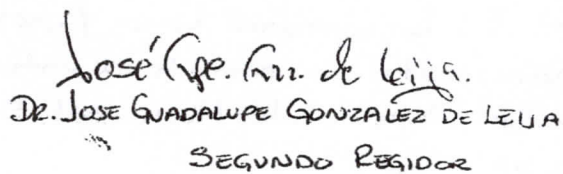 José Gpe. Gzz. de Leija.
DR. JOSE GUADALUPE GONZALEZ DE LEIJA
SEGUNDO REGIDOR